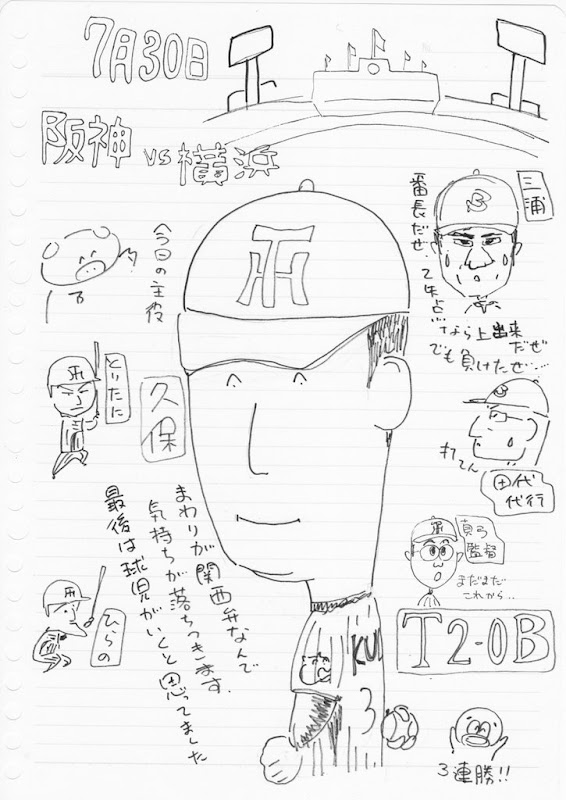 7月30日
阪神 vs 横浜
三浦
番長だぜ.. 2失点
なら上出来だぜ
でも負けたぜ…
今日の主役
久保
とりたに
ひらの
まわりが関西弁なんで
気持ちが落ちつきます.
最後は球児がいくと思ってました
打てん
田代
代行
真弓
監督
まだまだ
これから…
T2-0B
KU
3
3連勝!!